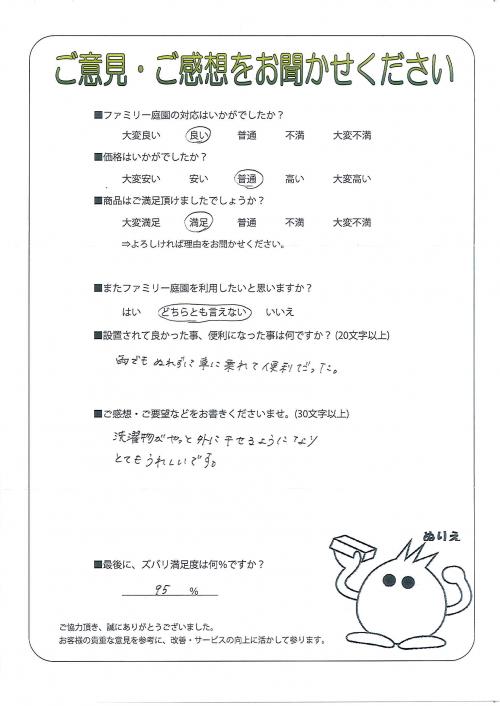 ご意見・ご感想をお聞かせください
■ファミリー庭園の対応はいかがでしたか？
大変良い 良い 普通 不満 大変不満
■価格はいかがでしたか？
大変安い 安い 普通 高い 大変高い
■商品はご満足頂けましたでしょうか？
大変満足 満足 普通 不満 大変不満
⇒よろしければ理由をお聞かせください。
■またファミリー庭園を利用したいと思いますか？
はい どちらとも言えない いいえ
■設置されて良かった事、便利になった事は何ですか？(20文字以上)
雨でもぬれずに車に乗れて便利だった。
■ご感想・ご要望などをお書きくださいませ。(30文字以上)
洗濯物がやっと外に干せるようになり
とてもうれしいです。
ぬりえ
■最後に、ズバリ満足度は何％ですか？
95 %
ご協力頂き、誠にありがとうございました。
お客様の貴重な意見を参考に、改善・サービスの向上に活かして参ります。